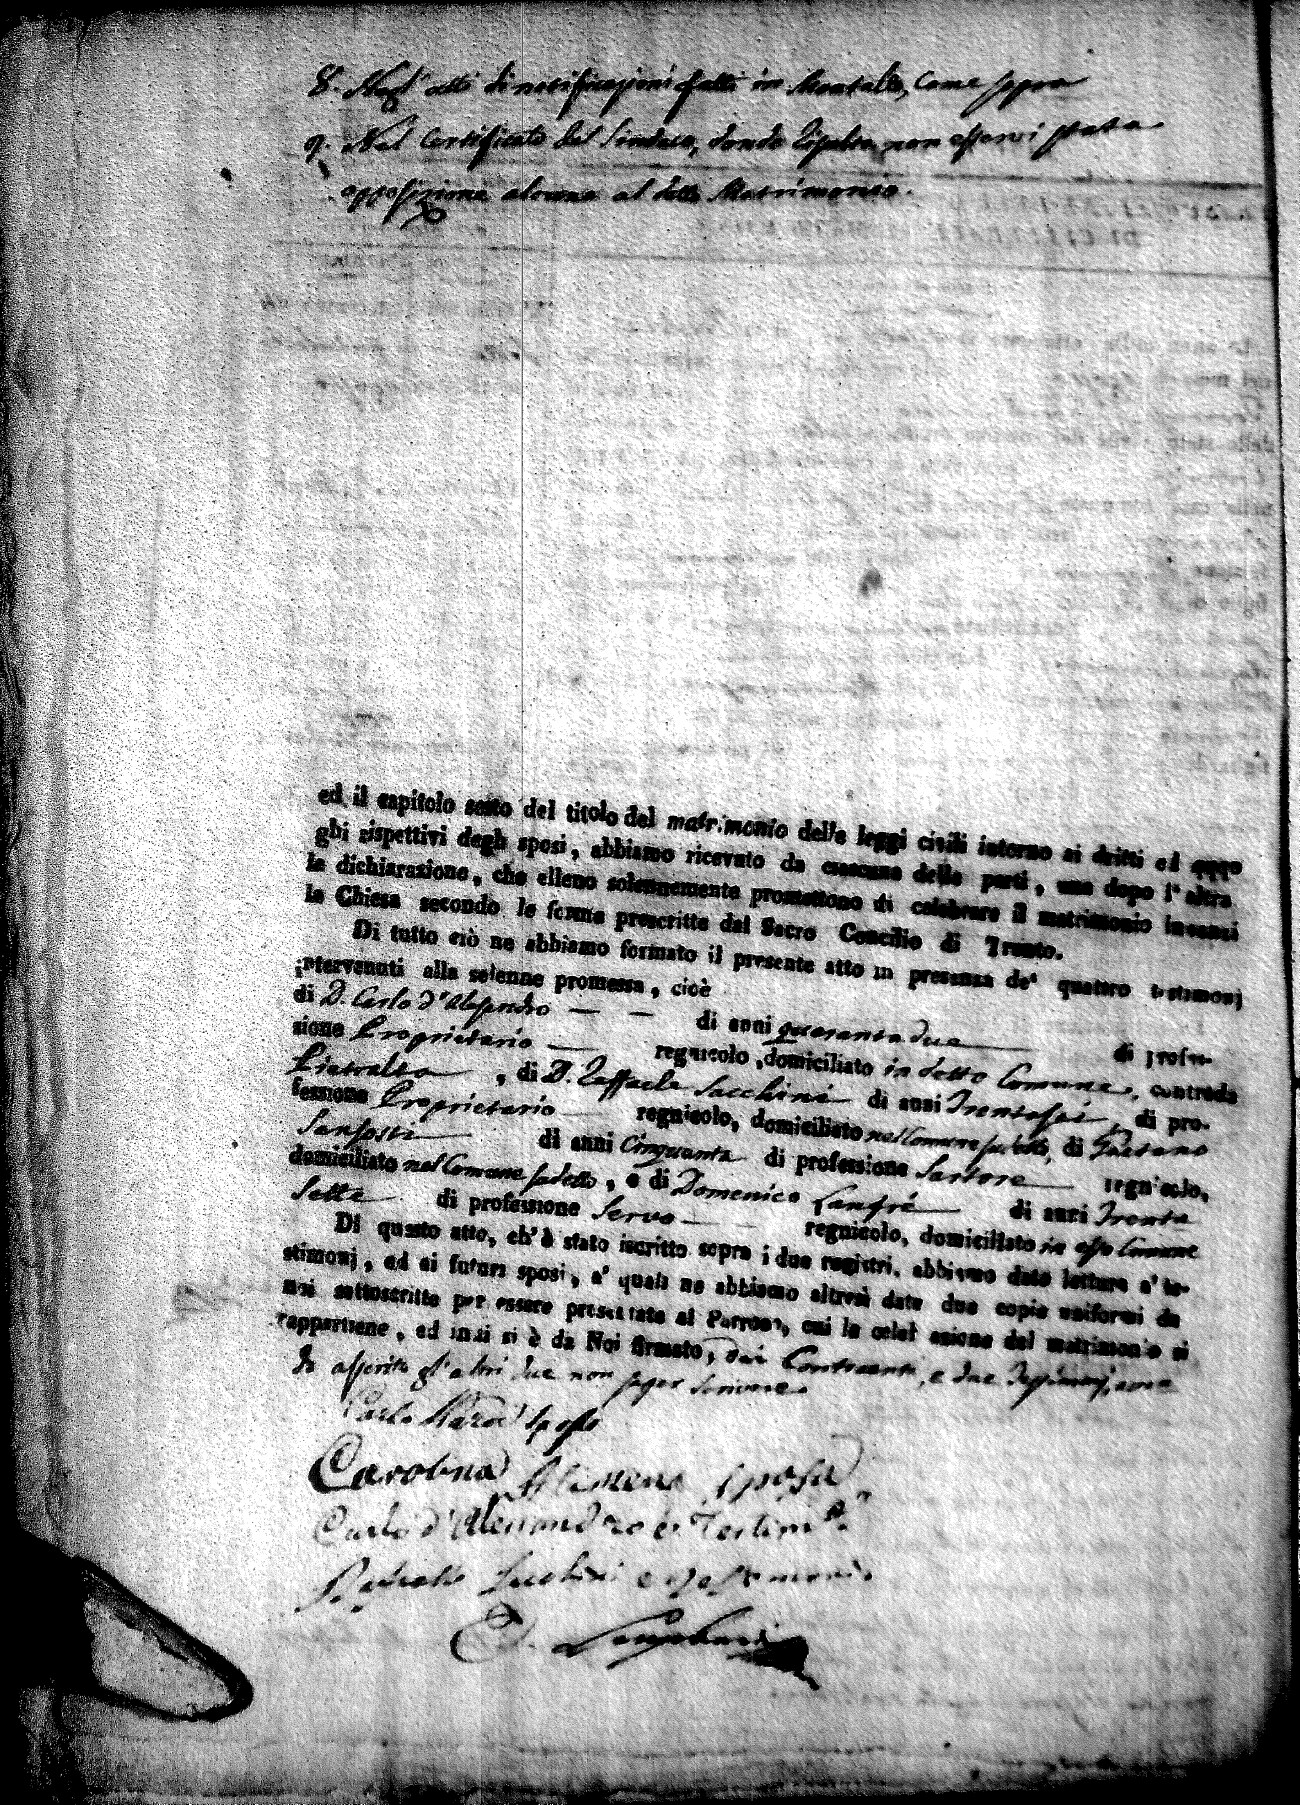 8. Negl' atti di notificazioni fatti in Montalto, Come sopra
9. Nel Certificato del Sindaco, donde risulta non esservi stata
opposizione alcuna al detto Matrimonio.
ed il capitolo sesto del titolo del matrimonio delle leggi civili intorno ai dritti ed obbli
ghi rispettivi degli sposi, abbiamo ricevuto da ciascuna delle parti, una dopo l'altra
la dichiarazione, che elleno solennemente promettono di celebrare il matrimonio innanzi
la Chiesa secondo le forme prescritte dal Sacro Concilio di Trento.
Di tutto ciò ne abbiamo formato il presente atto in presenza de' quattro testimonj
intervenuti alla solenne promessa, cioè
di D. Carlo d'Alesandro — — di anni quaranta due — di profes-
sione Proprietario — regnicolo, domiciliato in detto Comune, contrada
, di D. Raffaele Sacchini di anni Trentasei, di pro-
fessione Proprietario — regnicolo, domiciliato nel Comune sudetto, di Gaetano
Sansosti — di anni Cinquanta di professione Sartore — regnicolo,
domiciliato nel Comune sudetto, e di Domenico Lanfré — di anni Trenta
Sette — di professione Servo — — regnicolo, domiciliato in esso Comune
Di questo atto, ch'è stato iscritto sopra i due registri, abbiamo dato lettura a' te-
stimonj, ed ai futuri sposi, a' quali ne abbiamo altresì date due copie uniformi da
noi sottoscritte per essere presentate al Parroco, cui la celebrazione del matrimonio si
rappartiene, ed indi si è da Noi firmato, dai Contraenti, e due Testimonj, avendo
asserito gl'altri due non saper scrivere.
Carlo Sposo
Carolina Alimena Sposa
Carlo d'Alessandro è Testim.o
Raffaele Sacchini e Testimonio.